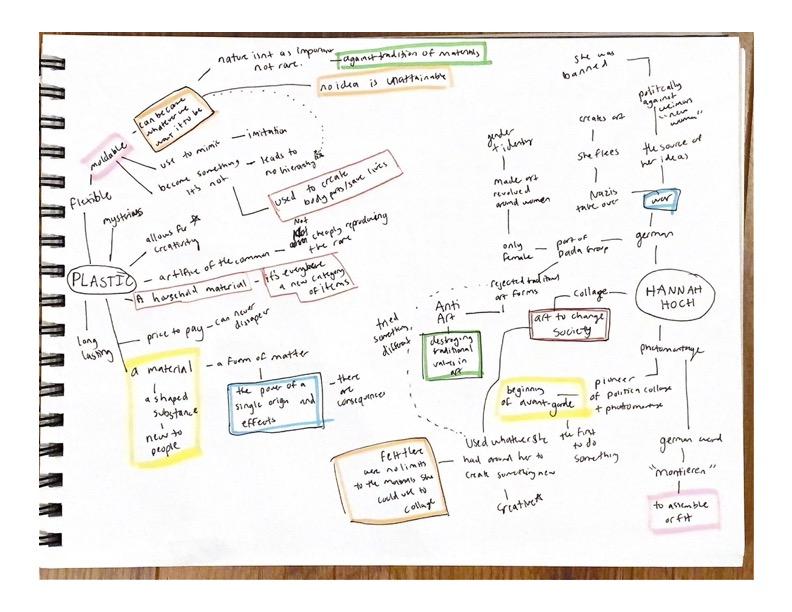 nature isn't as important
not rare.
against tradition of materials
no idea is unattainable
can become
whatever we
want it to be
moldable
use to mimic
imitation
become something
it's not
leads to
no hierarchy
used to create
body parts/save lives
flexible
mysterious
allows for
creativity
PLASTIC
artifice of the common
Not
cheaply reproducing
the rare
A household material
it's everywhere
a new category
of items
long
lasting
price to pay
can never
disapear
a material
a shaped
substance
new to
people
a form of matter
the power of a
single origin and
effects
there
are
consequences
she was
banned
politically
against
weimar
"new
woman"
creates art
she flees
Nazis
take over
the source of
her ideas
war
german
gender
identity
made art
revolved
around women
only
female
part of
Dada Group
rejected traditional
art forms
Anti
Art
destroying
traditional
values in
art
Collage
art to change
Society
HANNAH
HOCH
tried
something
different
photomontage
beginning
of avant-garde
pioneer
of political collage
+ photomontage
the first
to do
something
Used whatever she
had around her to
create something new
Creative
felt there
were no limits
to the materials she
could use to
collage
german word
"montieren"
to assemble
or fit